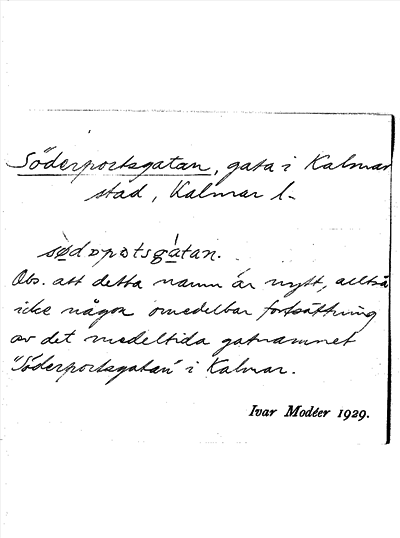 Söderportsgatan, gata i Kalmar
stad, Kalmar l-
sø̀dɒpɒtsgátan.
Obs. att detta namn är nytt, alltså
icke någon omedelbar fortsättning
av det medeltida gatnamnet
"Söderportsgatan" i Kalmar.
Ivar Modéer 1929.